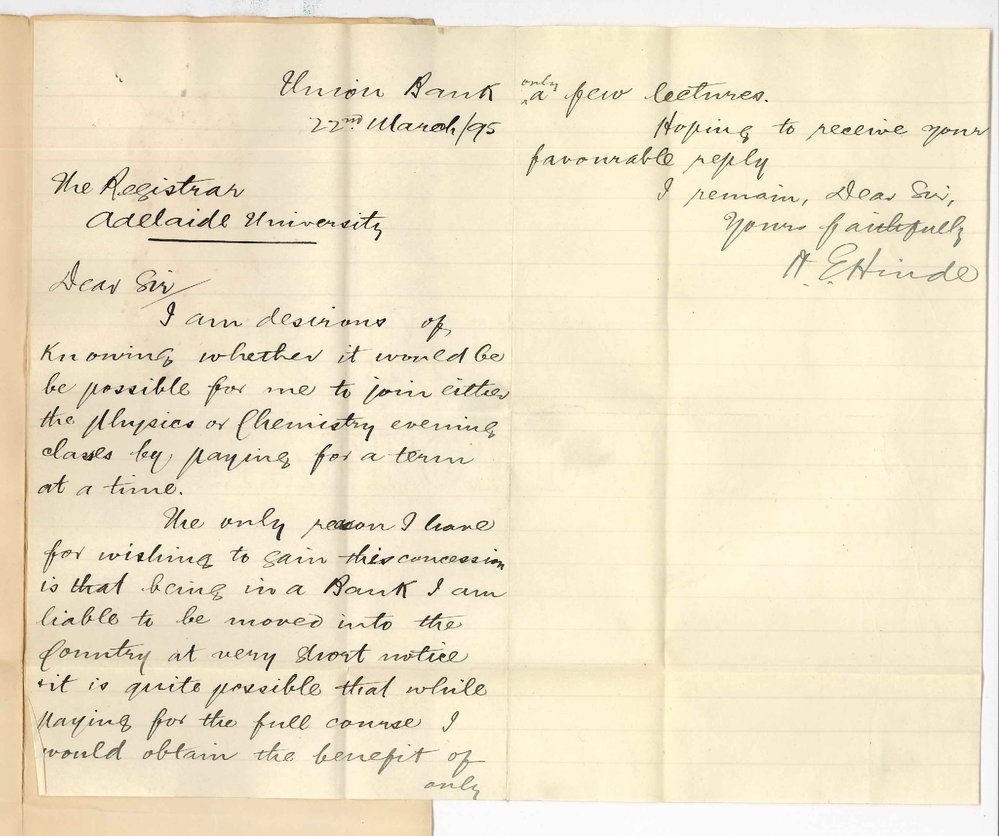 Union Bank
22nd March/95
The Registrar
Adelaide University
Dear Sir/
I am desirous of
knowing whether it would be
be possible for me to join either
the Physics or Chemistry evening
classes by paying for a term
at a time.
The only reason I have
for wishing to gain this concession
is that being in a Bank I am
liable to be moved into the
Country at very short notice
+it is quite possible that while
paying for the full course I
would obtain the benefit of
only
only
a few lectures.
Hoping to receive your
favourable reply
I remain, Dear Sir,
Yours faithfully
A. E Hinde